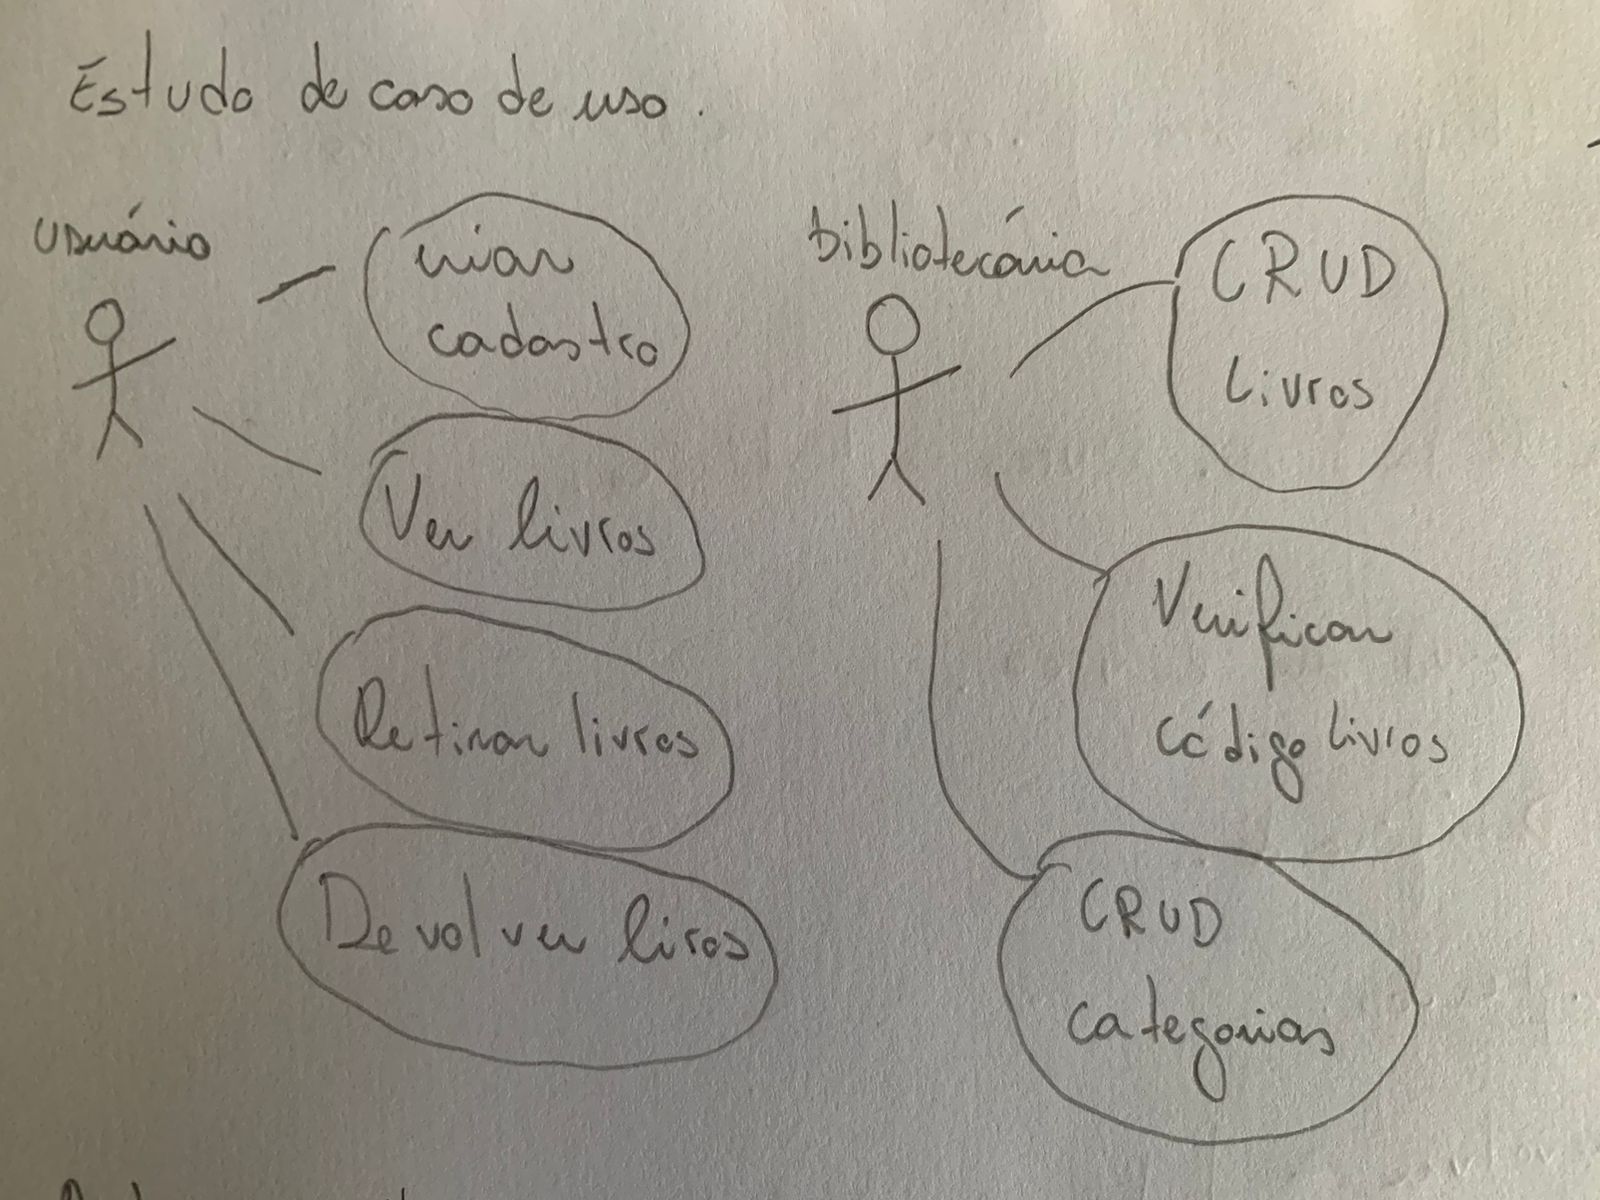 Estudo de caso de uso.
usuário
criar
cadastro
Ver livros
Retirar livros
Devolver liros
bibliotecária
CRUD
Livros
Verificar
código livros
CRUD
categorias